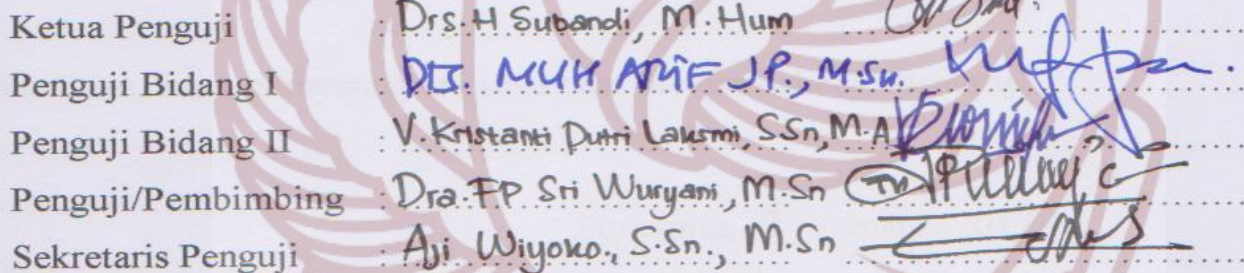 Ketua Penguji : Drs. H Subandi, M. Hum
Penguji Bidang I : Drs. MUH ARIF JP., M.Sn.
Penguji Bidang II : V. Kristanti Putri Laksmi, SSn, M.A
Penguji/Pembimbing : Dra. FP Sri Wuryani, M.Sn
Sekretaris Penguji : Aji Wiyoko., S.Sn., M.Sn